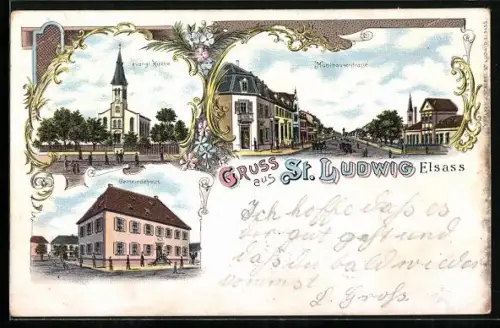 evang. Kirche
Mülhauserstrasse
Gemeindehaus
GRUSS aus ST. LUDWIG Elsass
Ich hoffe daß es
dir gut geht und
daß Du bald wieder
kommst
L. Groß